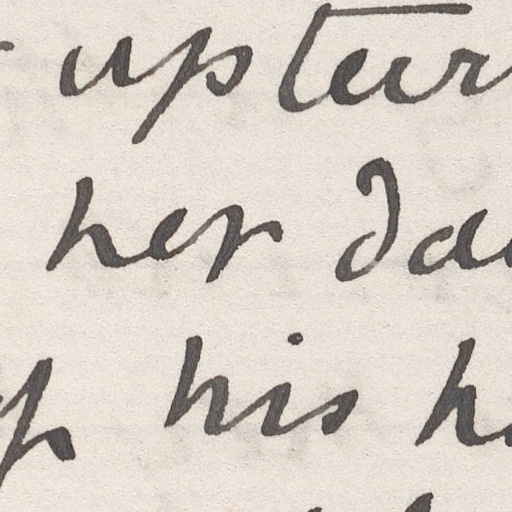 uptur
her da
up his h